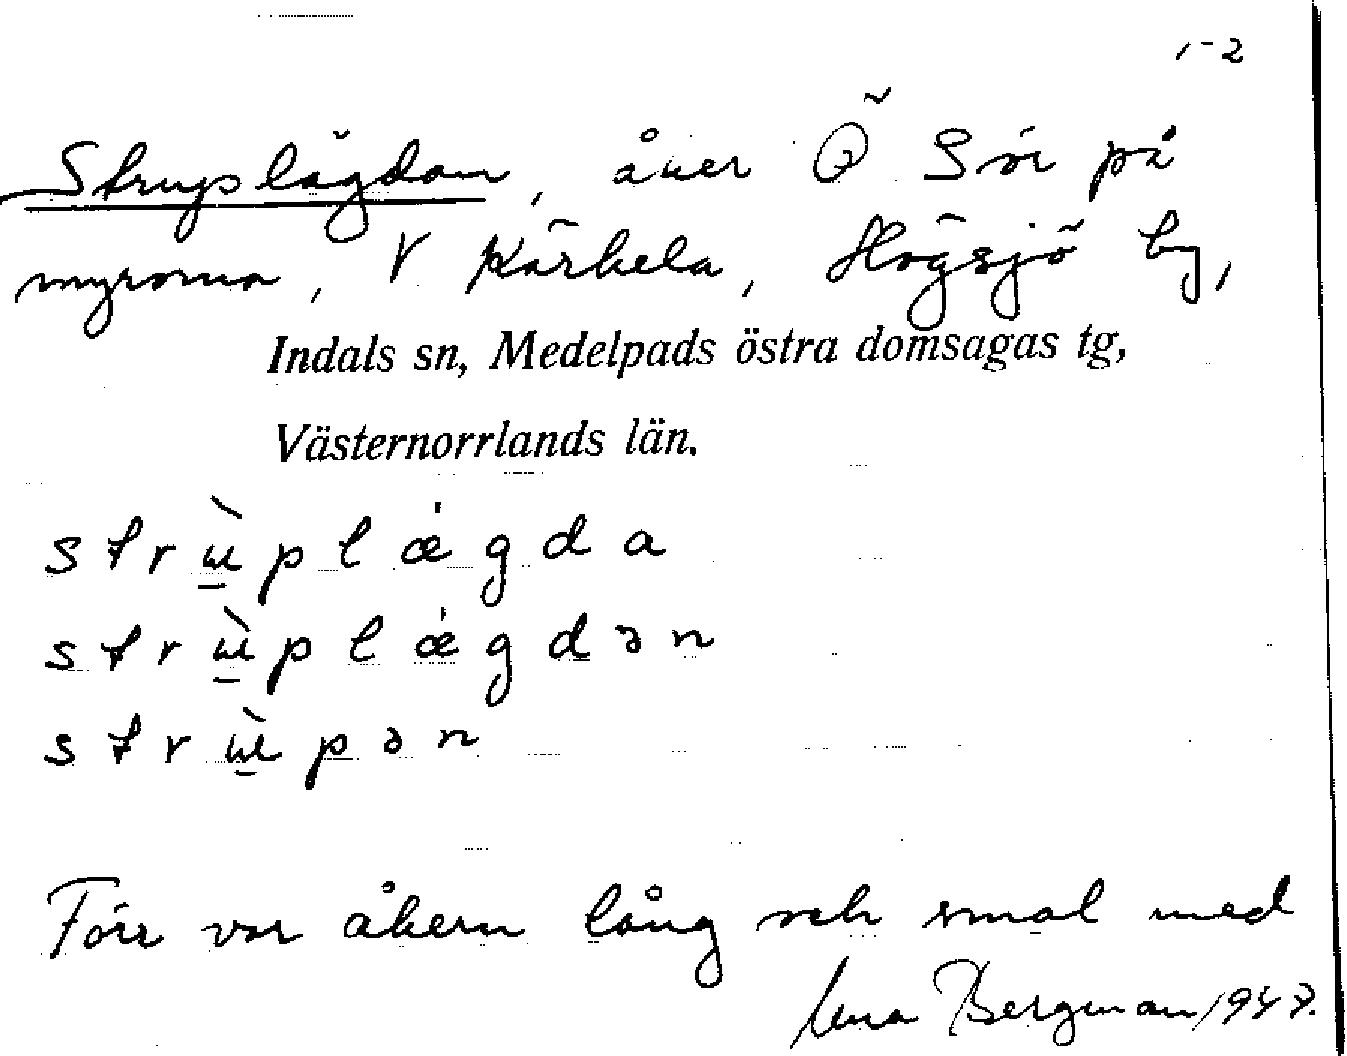 1-2
Struplägdan, åker Ö Sör på
myrarna, V Kärkela, Högsjö by,
Indals sn, Medelpads östra domsagas tg,
Västernorrlands län.
strɯ̀plǽgda
strɯ̀plǽgdən
strɯ̀pən
Förr var åkern lång och smal med
Bergman 1947.